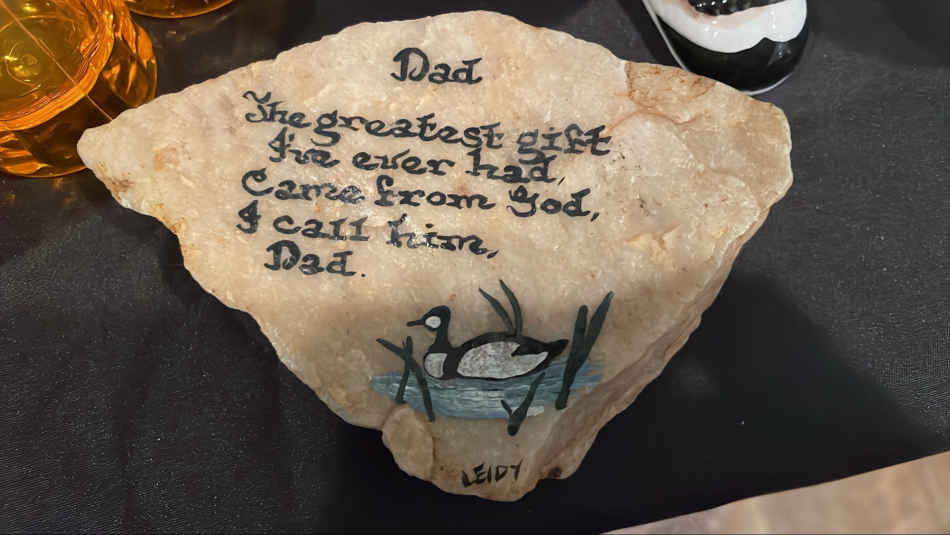 Dad
The greatest gift
I've ever had,
Came from God,
I call him,
Dad.
LEIDY